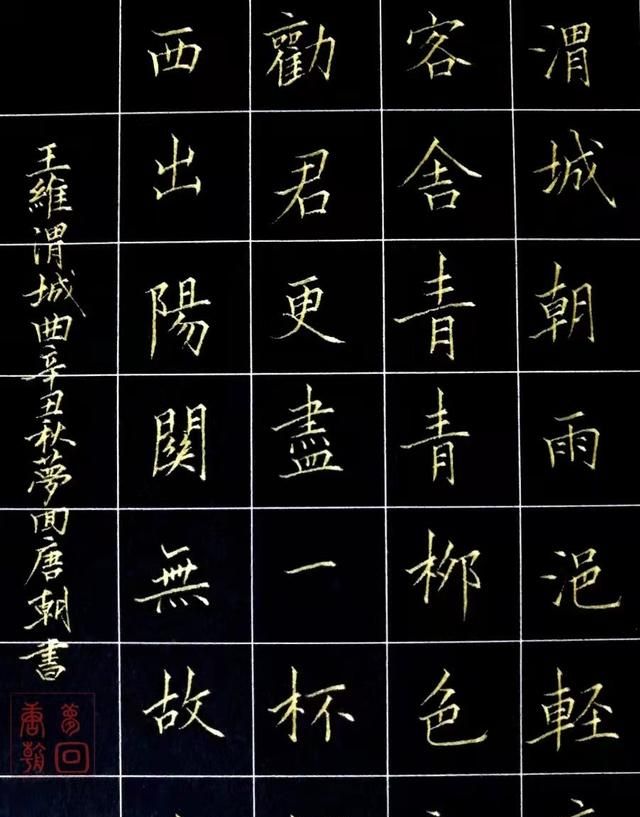 渭城朝雨浥軽
客舎青青柳色
勸君更盡一杯
西出陽関無故
王維渭城曲辛丑秋夢回唐朝書
夢回
唐朝